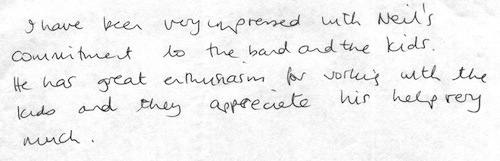 I have been very impressed with Neil's
commitment to the band and the kids.
He has great enthusiasm for working with the
kids and they appreciate his help very
much.